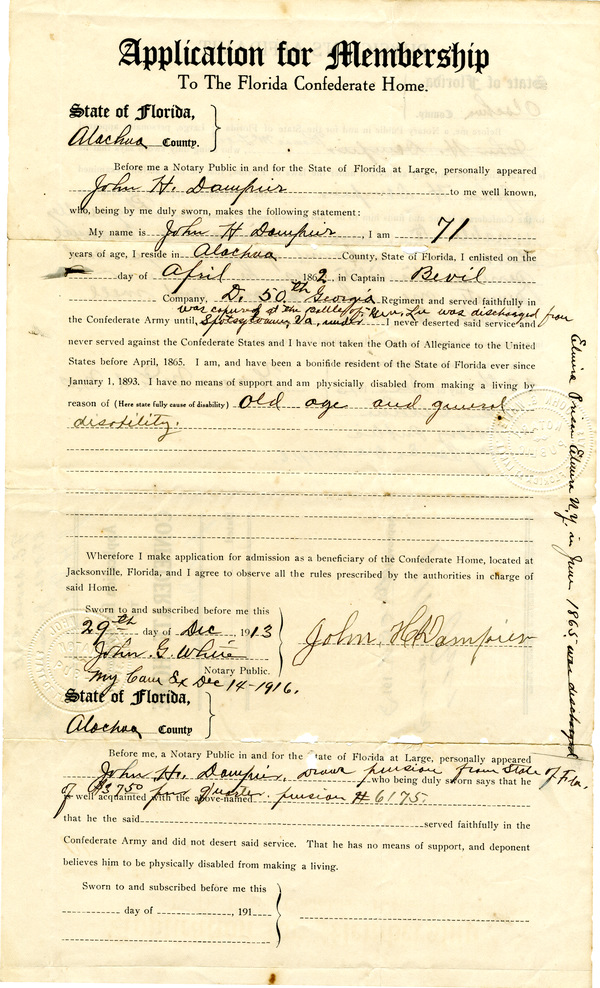 Application for Membership
To The Florida Confederate Home.
State of Florida,
Alachua County.
Before me a Notary Public in and for the State of Florida at Large, personally appeared
John H. Dampier to me well known,
who, being by me duly sworn, makes the following statement:
My name is John H Dampier, I am 71
years of age, I reside in Alachua County, State of Florida, I enlisted on the
day of April 1862 in Captain Bevil
Company, D. 50th Georgia Regiment and served faithfully in
was captured at the battle of
the Confederate Army until, Spotsylvany, Va, under Gen, Lee was discharged from I never deserted said service and
never served against the Confederate States and I have not taken the Oath of Allegiance to the United
States before April, 1865. I am, and have been a bonifide resident of the State of Florida ever since
January 1, 1893. I have no means of support and am physicially disabled from making a living by
reason of (Here state fully cause of disability) Old age and general
disability.
Elmira Prison Elmira N.Y. in June 1865 was discharged
Wherefore I make application for admission as a beneficiary of the Confederate Home, located at
Jacksonville, Florida, and I agree to observe all the rules prescribed by the authorities in charge of
said Home.
Sworn to and subscribed before me this
29th day of Dec 1913
John H Dampier
John G. White
Notary Public.
My Com Ex Dec 14-1916.
State of Florida,
Alachua County
Before me, a Notary Public in and for the State of Florida at Large, personally appeared
John H. Dampier, Draws pension from State of Fla. who being duly sworn says that he
of $37.50 per quarter. pension # 6175.
well acquainted with the above-named
that he the said served faithfully in the
Confederate Army and did not desert said service. That he has no means of support, and deponent
believes him to be physically disabled from making a living.
Sworn to and subscribed before me this
day of , 191